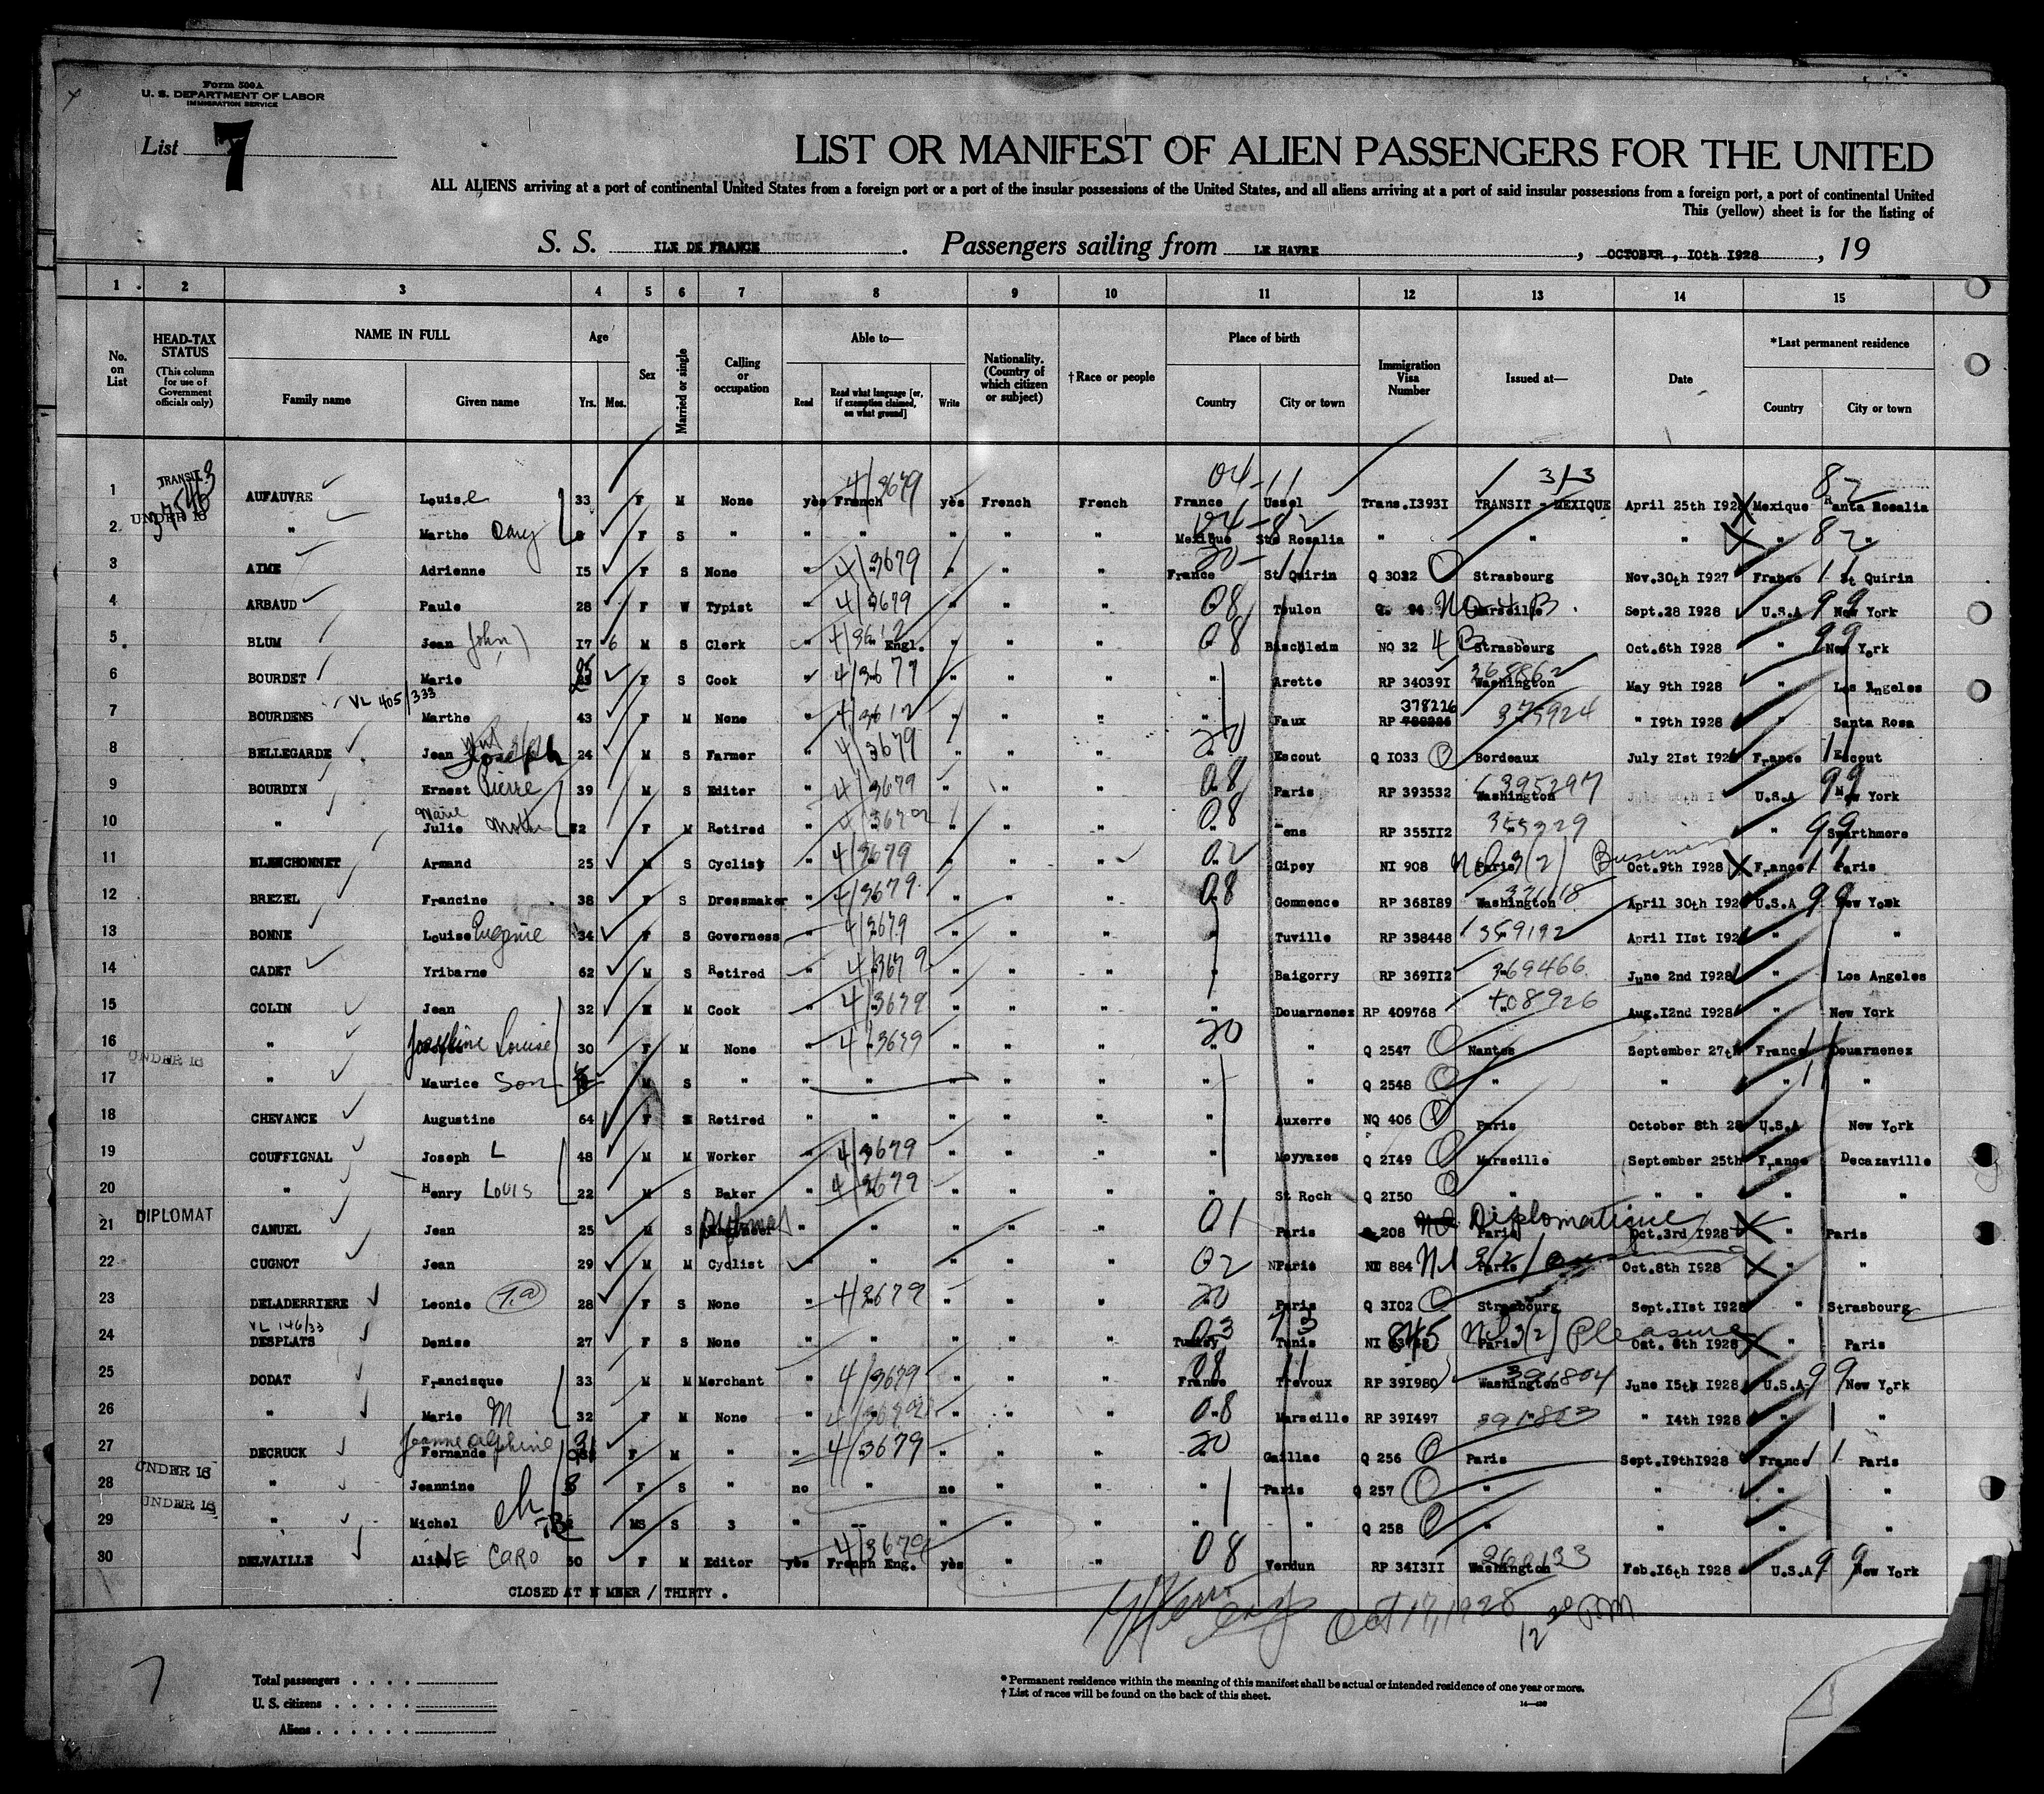 Form 500A
U. S. DEPARTMENT OF LABOR
IMMIGRATION SERVICE
List 7
LIST OR MANIFEST OF ALIEN PASSENGERS FOR THE UNITED
ALL ALIENS arriving at a port of continental United States from a foreign port or a port of the insular possessions of the United States, and all aliens arriving at a port of said insular possessions from a foreign port, a port of continental United
This (yellow) sheet is for the listing of
S. S. ILE DE FRANCE . Passengers sailing from LE HAVRE , OCTOBER, 10th 1928 , 19
1 2 3 4 5 6 7 8 9 10 11 12 13 14 15
No. on List
HEAD-TAX STATUS (This column for use of Government officials only)
NAME IN FULL
Family name Given name
Age
Yrs. Mos.
Sex
Married or single
Calling or occupation
Able to—
Read Read what language [or, if exemption claimed, on what ground] Write
Nationality. (Country of which citizen or subject)
†Race or people
Place of birth
Country City or town
Immigration Visa Number
Issued at—
Date
*Last permanent residence
Country City or town
1 TRANSIT AUFAUVRE Louise 33 F M None yes French 4/3679 yes French French France 04-11 Ussel Trans.I393I TRANSIT - MEXIQUE 313 April 25th I928 Mexique 82 Santa Rosalia
2 UNDER 16 " Marthe F S " " " " " " Mexique Ste Rosalia " " " " 82 "
3 AIME Adrienne I5 F S None " 4/3679 " " " France 20-11 St Quirin Q 3022 Strasbourg Nov.30th I927 France 11 St Quirin
4 ARBAUD Paule 28 F W Typist " 4/3679 " " " 08 Toulon NQ 4 B. Marseille Sept.28 I928 U.S.A 99 New York
5 BLUM Jean John I7 6 M S Clerk " 4/3612 Engl. " " " 08 Bischleim NO 32 4 B Strasbourg Oct.6th I928 " 99 New York
6 BOURDET Marie F S Cook " 4/3677 " " " " Arette RP 34039I 368862 Washington May 9th I928 " Los Angeles
7 VL 405/333 BOURDENS Marthe 43 F M None " 4/3612 " " " " Faux RP 378226 375924 " I9th I928 " Santa Rosa
8 BELLEGARDE Jean Joseph 24 M S Farmer " 4/3679 " " " 20 Escout Q I033 Bordeaux July 2Ist I928 France 11 Escout
9 BOURDIN Ernest Pierre 39 M S Editer " 4/3679 " " " 08 Paris RP 393532 395297 Washington U.S.A 99 New York
10 " Marie Julie Mother F M Retired " " " " 08 RP 355II2 355329 " 99 Swarthmore
11 BLENCHONNET Armand 25 M S Cyclist " 4/3679 " " " 02 Gipey NI 908 Paris 3(2) Business Oct.9th I928 France 11 Paris
12 BREZEL Francine 38 F S Dressmaker " 4/3679 " " " 08 Gommence RP 368I89 Washington April 30th I928 U.S.A 99 New York
13 BONNE Louise Eugenie 34 F S Governess " 4/3679 " " " " Tuville RP 358448 359192 April IIst I928 " "
14 CADET Yribarne 62 M S Retired " 4/3679 " " " " Baigorry RP 369II2 369466 June 2nd I928 " Los Angeles
15 COLIN Jean 32 M M Cook " 4/3679 " " " " Douarnenez RP 409768 408926 Aug.I2nd I928 " New York
16 " Josephine Louise 30 F M None " 4/3679 " " " 20 " Q 2547 Nantes September 27th France 11 Douarnenez
17 UNDER 16 " Maurice Son M S " " " " " " " Q 2548 " " " 11 "
18 CHEVANCE Augustine 64 F Retired " " " " " " Auxerre NQ 406 Paris October 8th 28 U.S.A New York
19 COUFFIGNAL Joseph L 48 M M Worker " 4/3679 " " " " Moyyazes Q 2I49 Marseille September 25th France Decazaville
20 " Henry LOUIS 22 M S Baker " 4/3679 " " " " St Roch Q 2I50 " " " "
21 DIPLOMAT CANUEL Jean 25 M S Diplomat " " " " " 01 Paris 208 Diplomatique Paris Oct.3rd I928 " Paris
22 CUGNOT Jean 29 M M Cyclist " " " " " 02 Paris 884 3(2) Paris Oct.8th I928 " "
23 DELADERRIERE Leonie 28 F S None " 4/3679 " " " 20 Paris Q 3I02 Strasbourg Sept.IIst I928 " Strasbourg
24 VL 146/33 DESPLATS Denise 27 F S None " " " " " 03 73 Tunis NI 845 3(2) Pleasure Paris Oct. 8th I928 " Paris
25 DODAT Francisque 33 M M Merchant " 4/3679 " " " 08 11 France Trevoux RP 39I980 391804 Washington June I5th I928 U.S.A. 99 New York
26 " Marie M 32 F M None " " " " 08 Marseille RP 39I497 " I4th I928 " "
27 DECRUCK Jeanne Alphine Fernande 31 F M " " 4/3679 " " " 20 Gaillac Q 256 Paris Sept.I9thI928 France 11 Paris
28 UNDER 16 " Jeannine 8 F S " no " no " " " Paris Q 257 " " " "
29 UNDER 16 " Michel S " -- " " " " " Q 258 " " " "
30 DELVAILLE ALINE CARO 50 F M Editor yes French Eng. yes " " 08 Verdun RP 34I3II Washington Feb.I6th I928 U.S.A 99 New York
CLOSED AT N MBER / THIRTY .
Oct 17, 1928 12 30 PM
7
Total passengers . . . .
U. S. citizens . . . . .
Aliens . . . . . .
* Permanent residence within the meaning of this manifest shall be actual or intended residence of one year or more.
† List of races will be found on the back of this sheet.